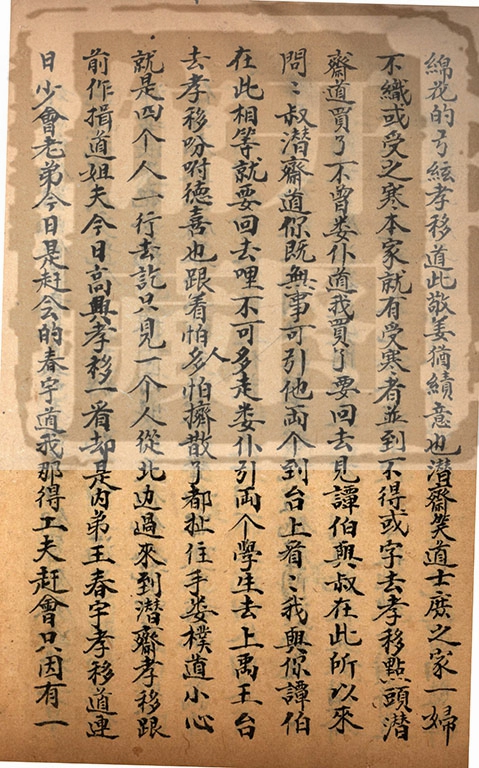 綿花的弓絃孝移道此敬姜猶績意也潛齋笑道士庶之家一婦
不織或受之寒本家就有受寒者並到不得或字去孝移點頭潛
齋道買了不曾娄仆道我買了要回去見譚伯與叔在此所以來
問〻叔潛齋道你既無事可引他両个到台上看〻我與你譚伯
在此相等就要回去哩不可多走娄仆引両个學生去上禹王台
去孝移吩咐德喜也跟着怕人多怕擠散了都扯住手娄樸道小心
就是四个人一行去訖只見一个人從北边過來到潛齋孝移跟
前作揖道姐夫今日高興孝移一看却是内弟王春宇孝移道連
日少會老弟今日是赶会的春宇道我那得工夫赶會只因有一